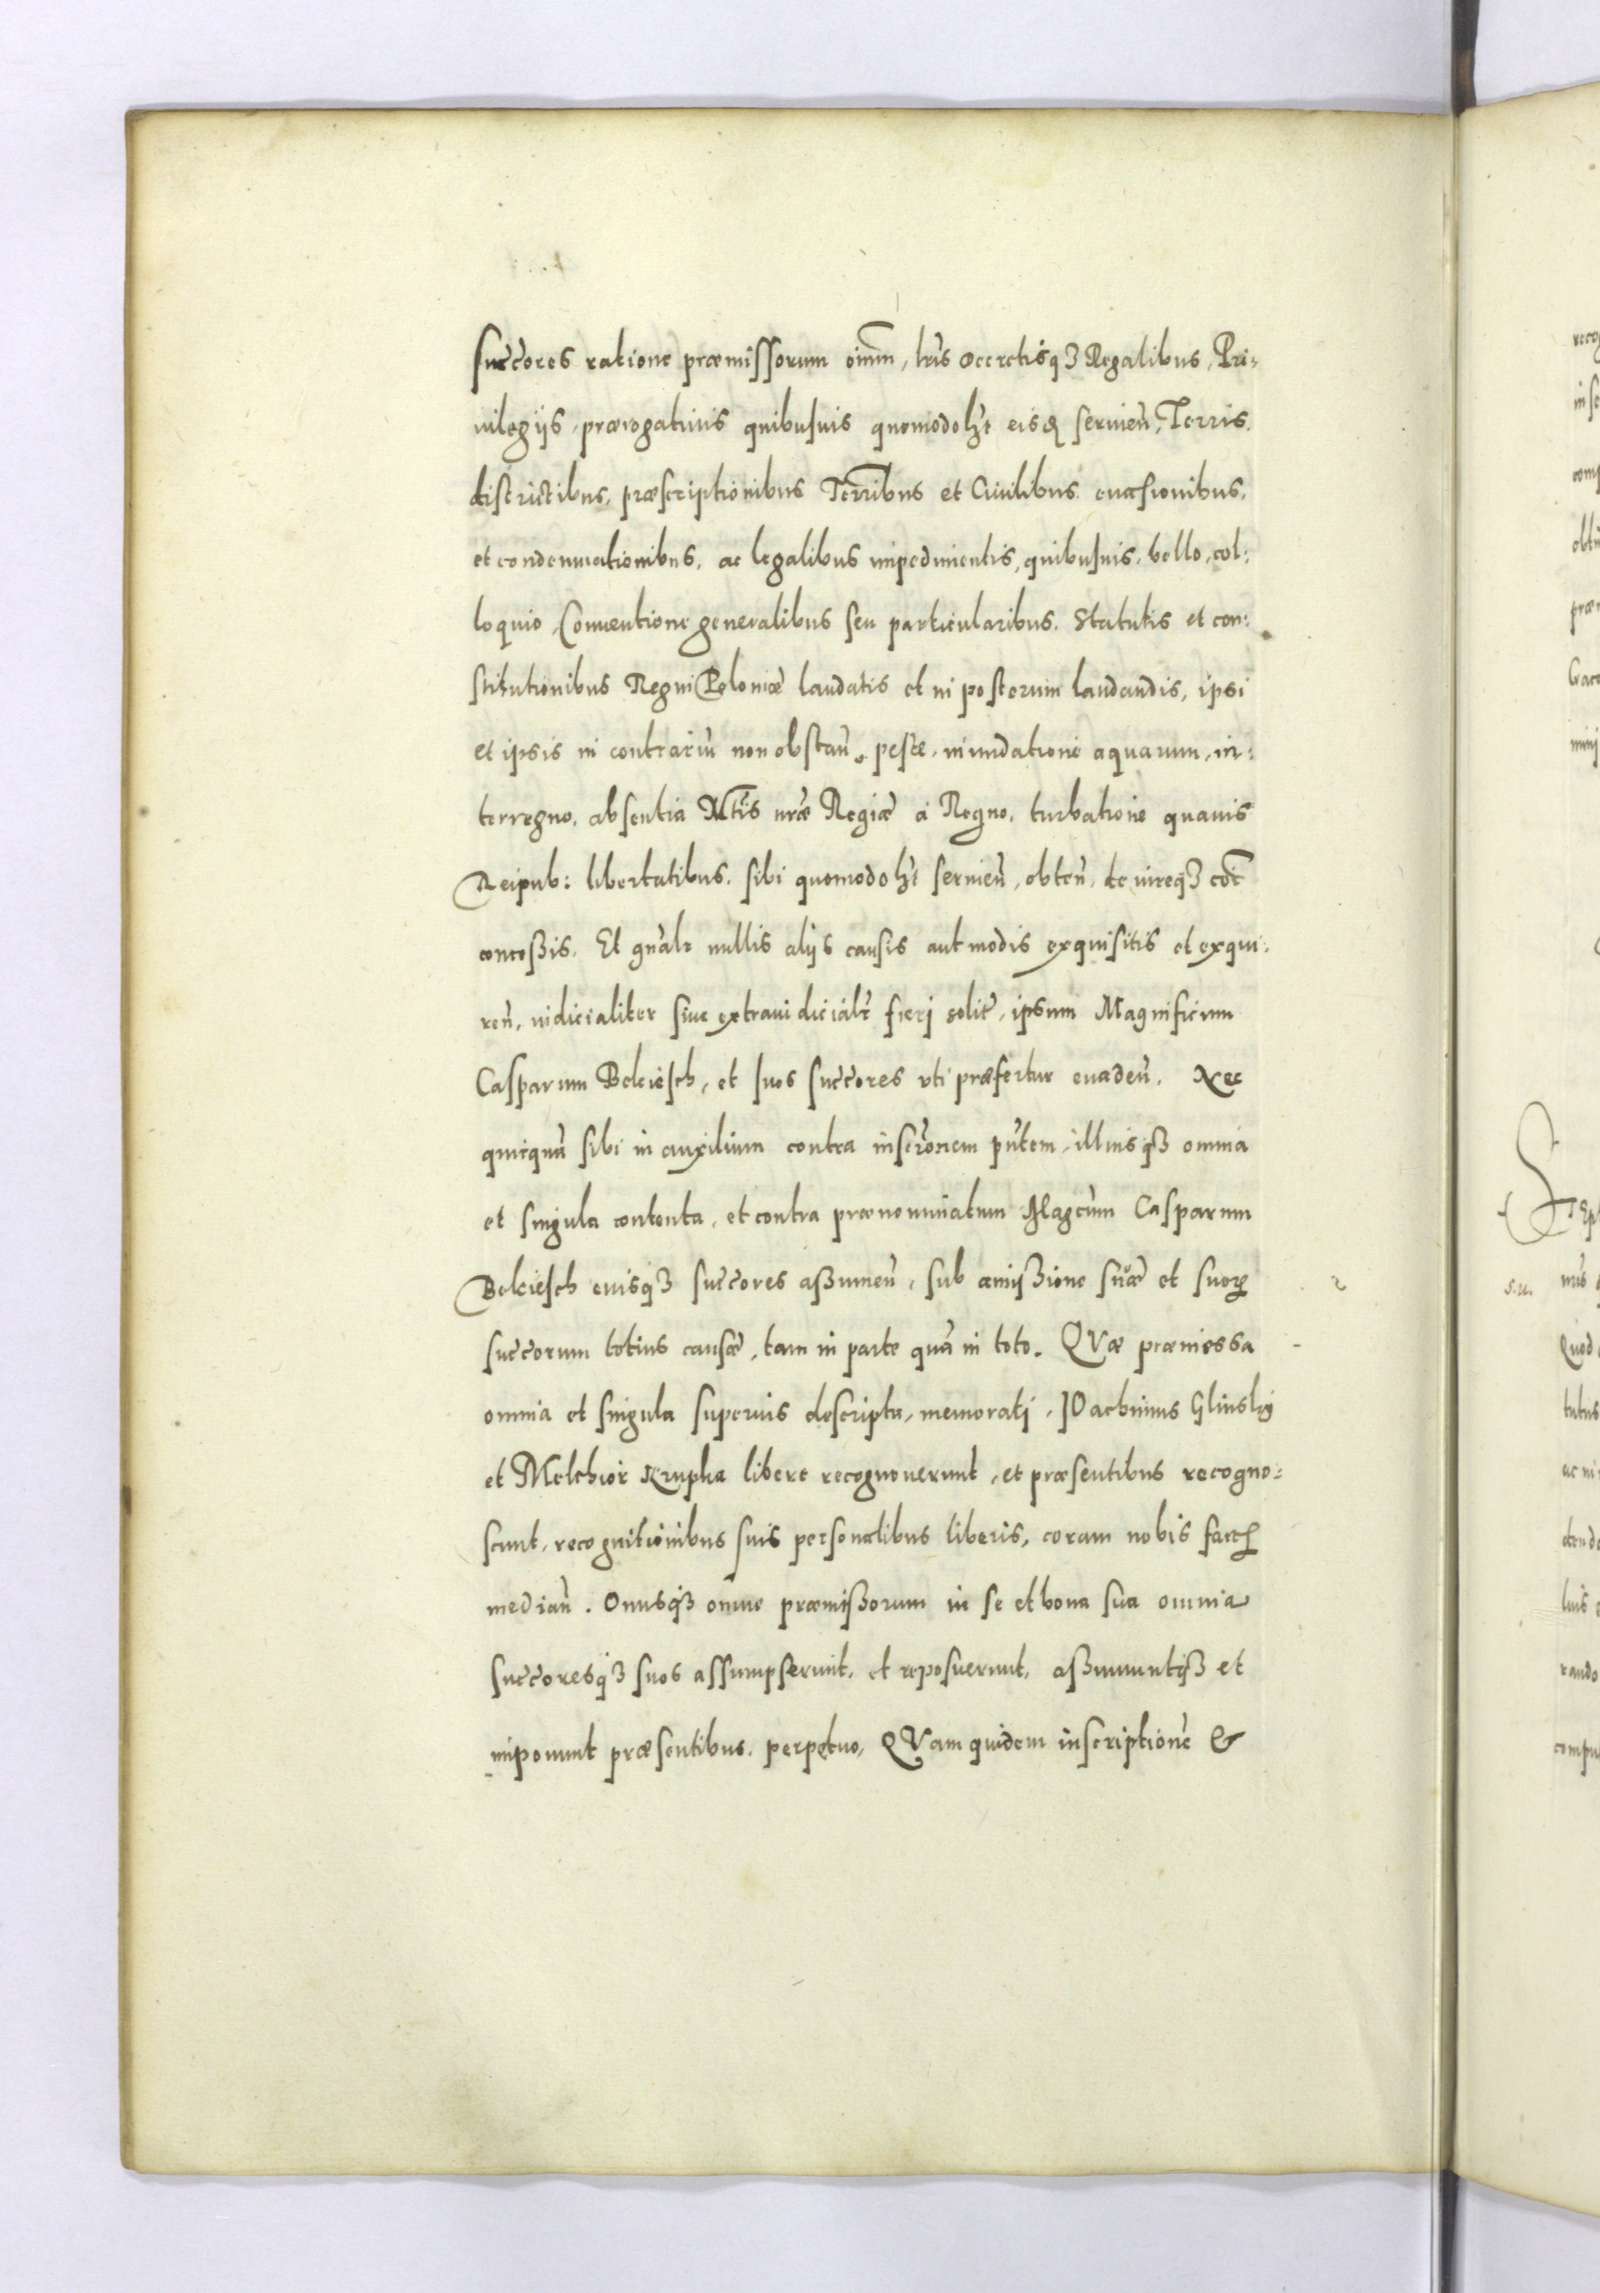 succ̃ores ratione præmissorum oĩum, lrĩs decretisq3 Regalibus, Pri=
uilegijs, prærogatiuis quibusuis quomodolz̃t eisdẽ seruieñ, Terris,
districtibus, præscriptionibus Terrr̃ibus et Ciuilibus, euasionibus,
et condemnationibus, ac legalibus impedimentis, quibusuis, bello, col=
loquio, Conuentione generalibus seu particularibus, Statutis et con=
stitutionibus Regni Poloniæ laudatis et in posterum laudandis, ipsi
et ipsis in contrariũ non obstañ, peste, inundatione aquarum, in=
terregno, absentia Mt̃tis nr̃æ Regiæ à Regno, turbatione quauis
Reipub: libertatibus, sibi quomodolz̃t seruieñ, obteñ, de iureq3
conceßis. Et gñalr̃ nullis alijs causis aut modis exquisitis et exqui=
reñ, iudicialiter siue extraiudicialr̃ fieri solit̃, ipsum Magnificum
Casparum Bekiesch, et suos succ̃ores vti præfertur euadeñ. Nec
quicquã sibi in auxilium contra inscr̃onem pñtem, illiusq3 omnia
et singula contenta, et contra prænominatum Magc̃um Casparum
Bekiesch euisq3 succ̃ores aßumeñ, sub amißione suæ et suorũ
succ̃orum totius causæ, tam in parte quã in toto. QVæ præmissa
omnia et singula superius descripta, memorati, IOachimus Glinsky
et Melchior Krupka libere recognouerunt, et præsentibus recogno=
scunt, recognitionibus suis personalibus liberis, coram nobis factis
mediañ. Onusq3 omne præmißorum in se et bona sua omnia
succ̃oresq3 suos assumpserunt, et reposuerunt, aßumuntq3 et
imponunt præsentibus, perpetuo, QVam quidem inscriptionẽ &